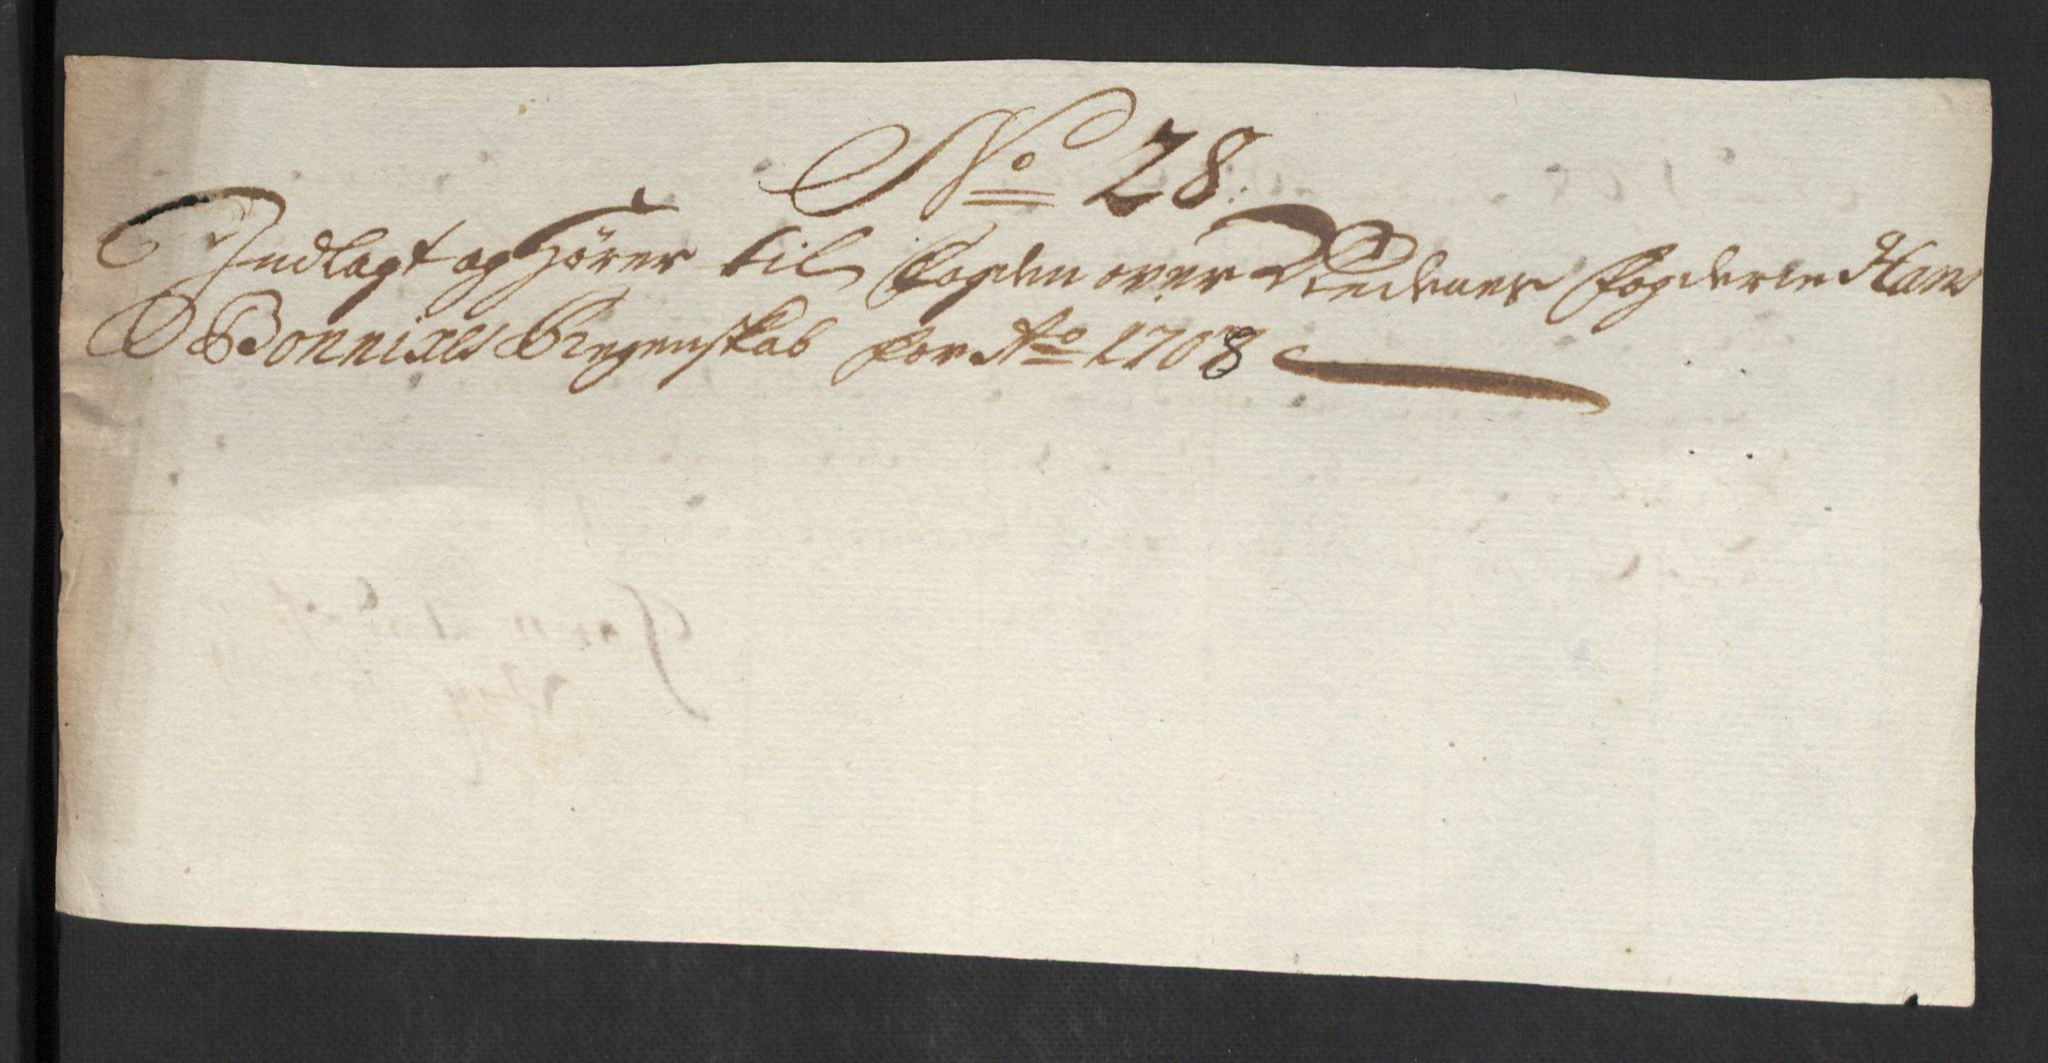 No 28.
Indlagt og hører til Fogden over Nedenes Fogderie Hans
Bonnixes Regenskab for Ao 1708